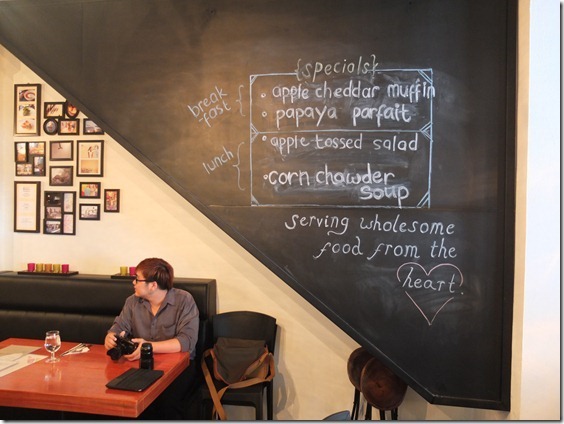 {specials}
break
-fast
• apple cheddar muffin
• papaya parfait
lunch
• apple tossed salad
• corn chowder
soup
serving wholesome
food from the
heart.